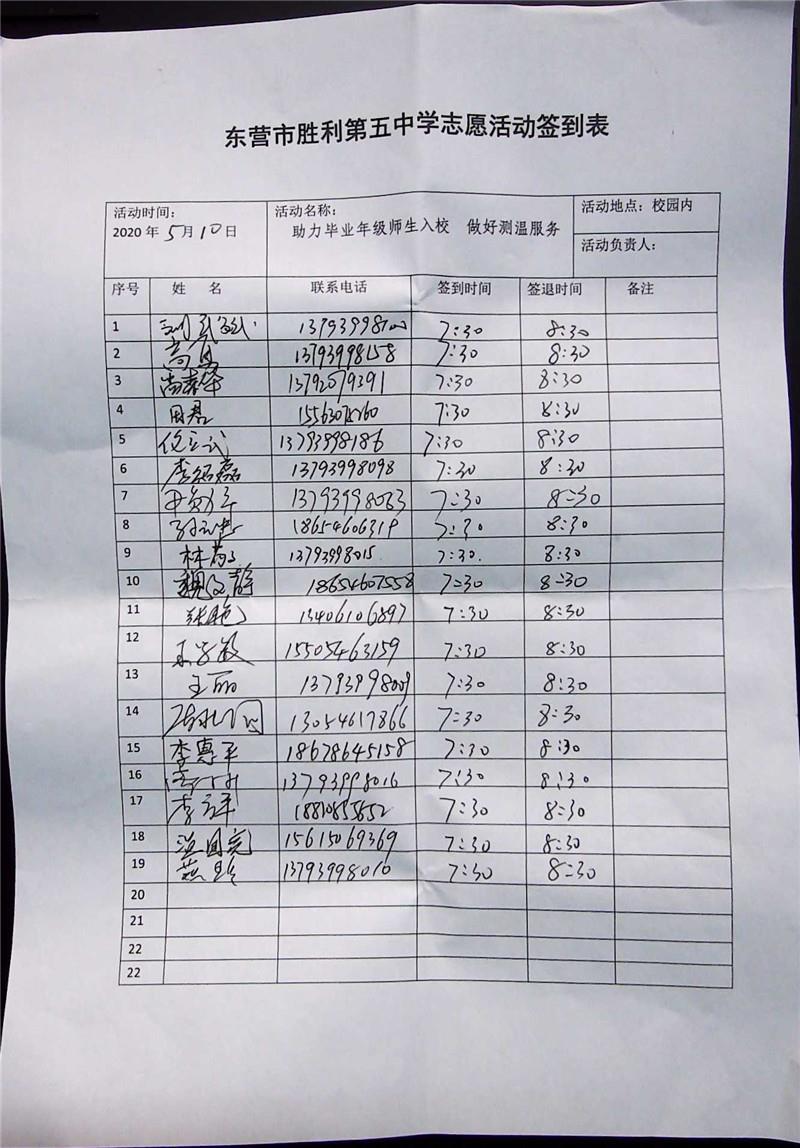 东营市胜利第五中学志愿活动签到表
活动时间：
2020 年 5 月 10 日
活动名称：
助力毕业年级师生入校 做好测温服务
活动地点：校园内
活动负责人：
序号 姓 名 联系电话 签到时间 签退时间 备注
1 7:30 8:30
2 13793998158 7:30 8:30
3 13792079391 7:30 8:30
4 田君 7:30 8:30
5 13793998186 7:30 8:30
6 李绍磊 13793998098 7:30 8:30
7 13793998063 7:30 8:30
8 18654606319 7:30 8:30
9 13793998015 7:30 8:30
10 魏文静 18654607558 7:30 8:30
11 张艳 13406106897 7:30 8:30
12 15505463159 7:30 8:30
13 王丽 13793998009 7:30 8:30
14 13054617866 7:30 8:30
15 李惠平 18678645158 7:30 8:30
16 13793998016 7:30 8:30
17 18810855652 7:30 8:30
18 15615069369 7:30 8:30
19 燕玲 13793998010 7:30 8:30
20
21
22
22